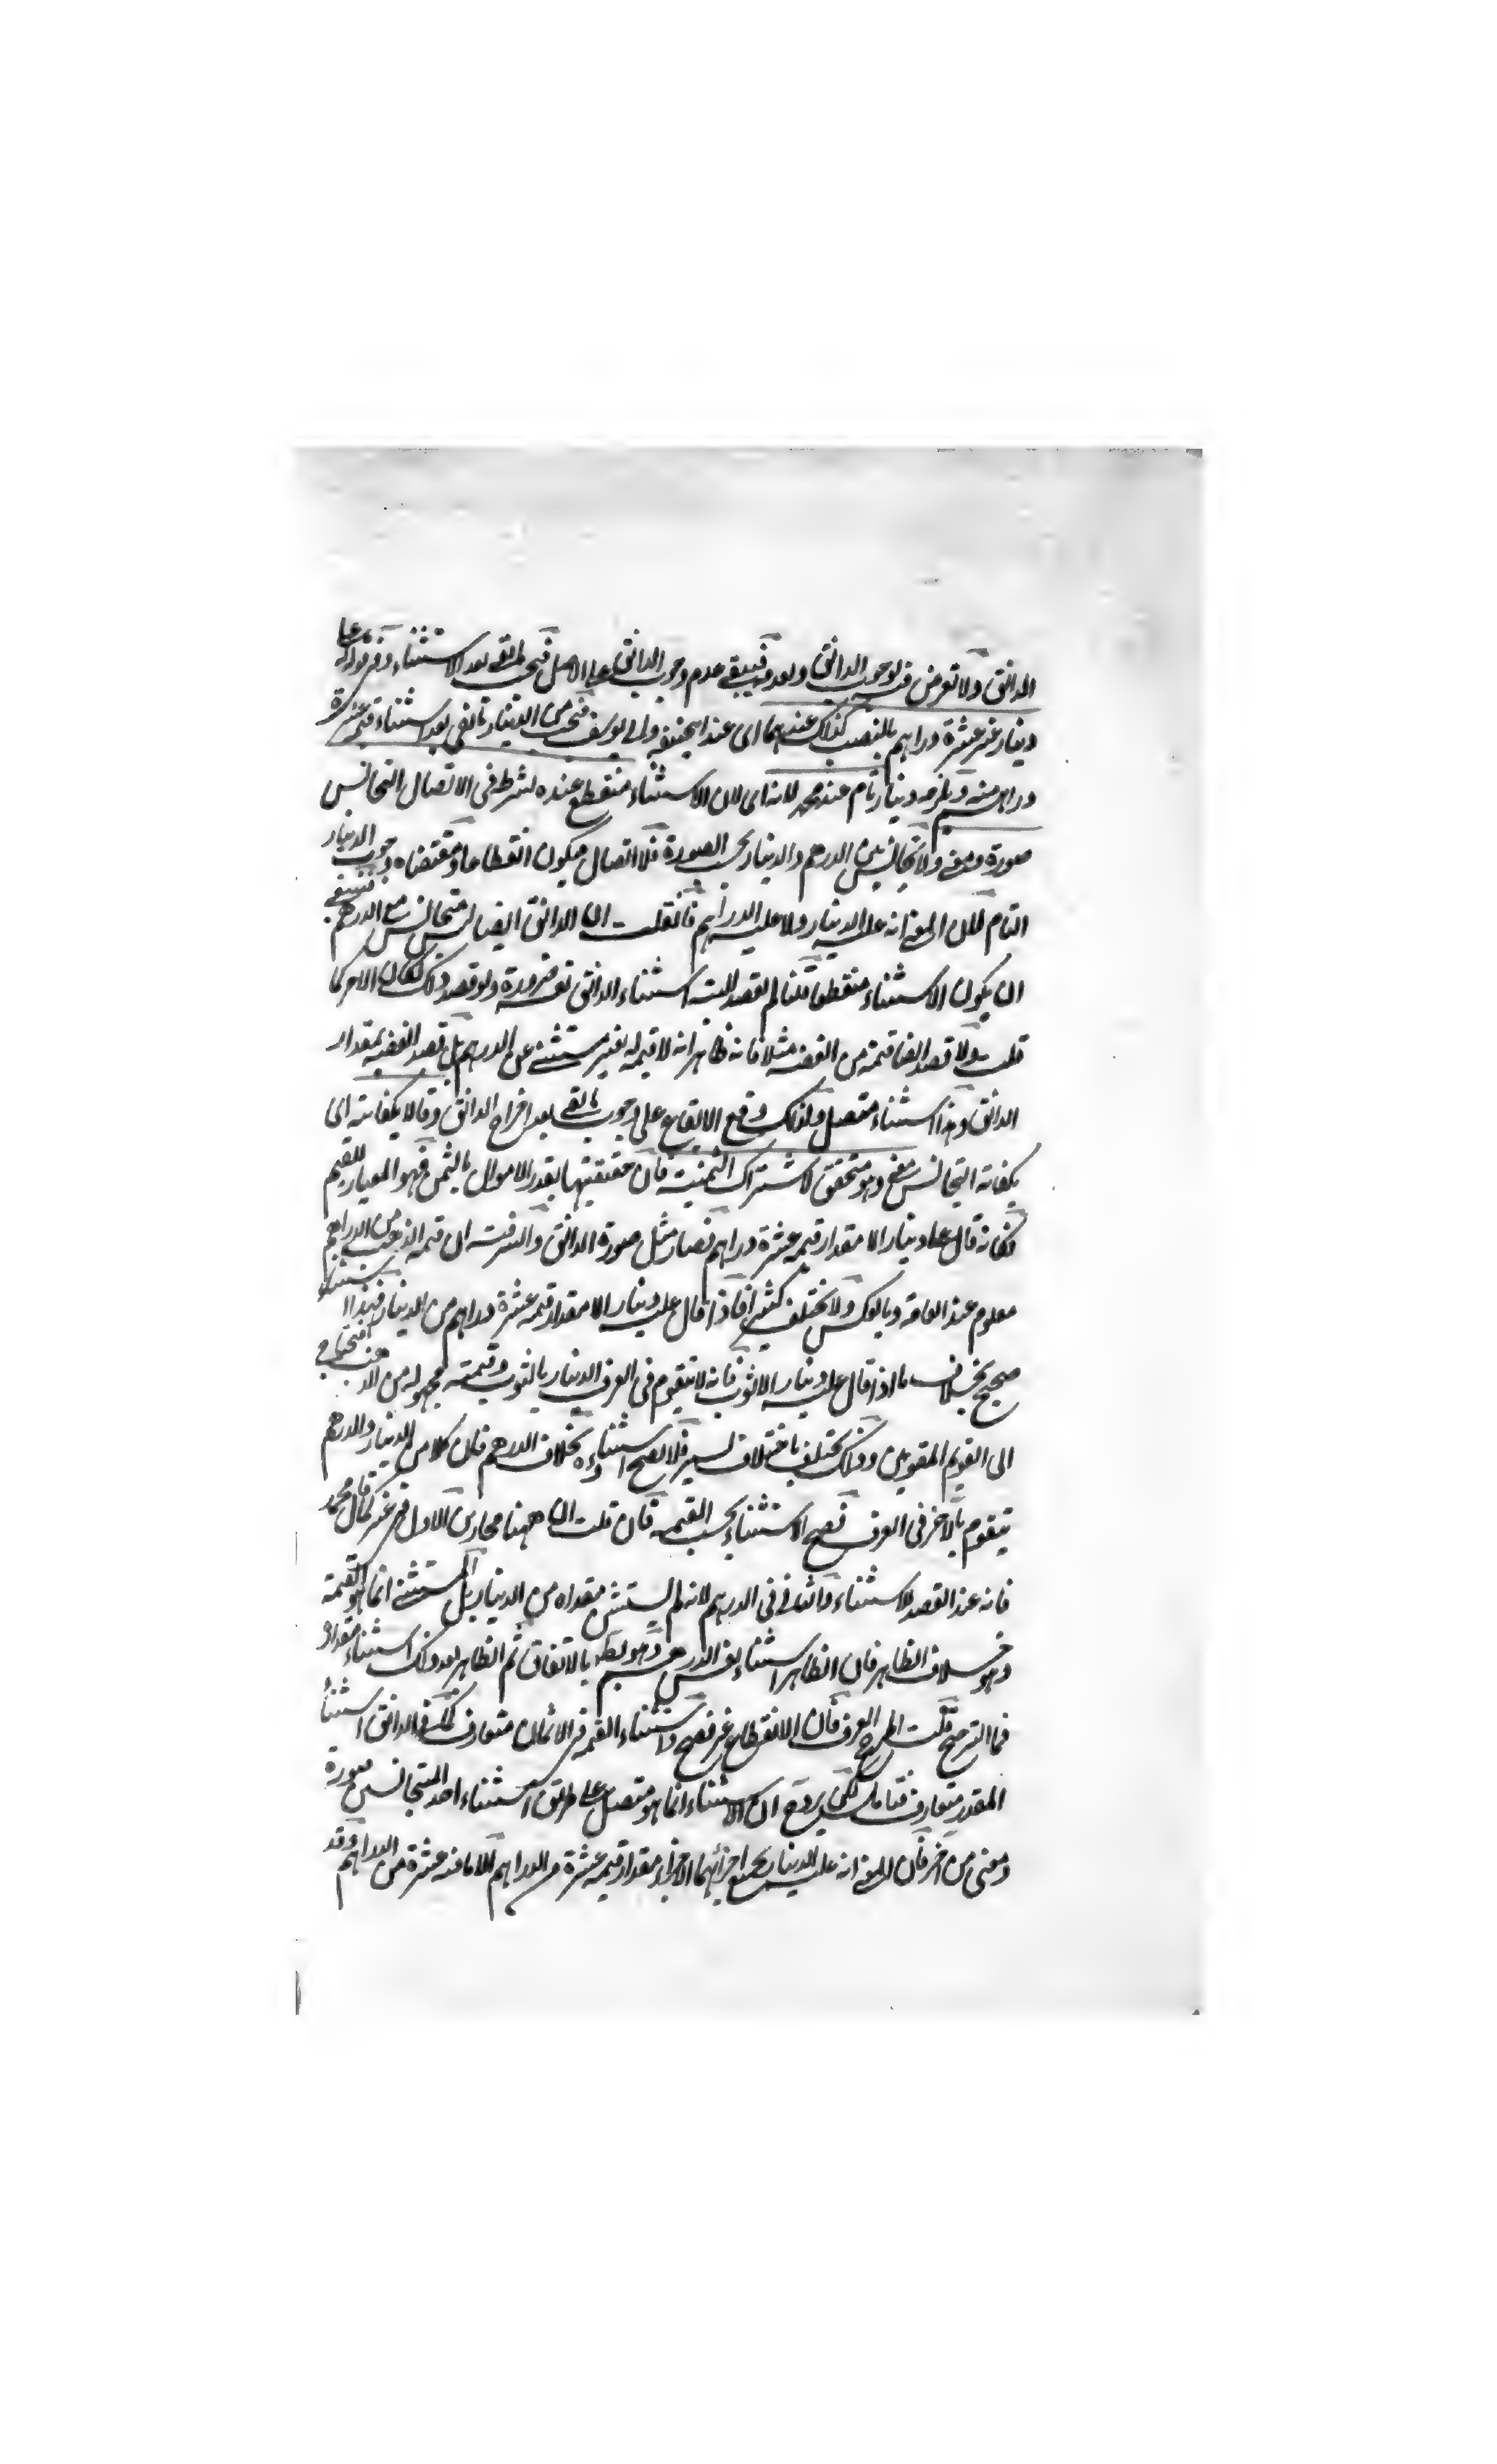 الدانق ولا تعرض فيه لوجوب الدانق وبعدمه فيبقى عدم وجوب الدانق على الاصل فيجب ما بقي بعد الاستثناء وفي قوله على
دينار غير عشرة دراهم بالنصب كذلك عندهما اى عند ابيحنيفة وابى يوسف فيجب من الدينار ما بقى بعد استثناء قيمة عشرة
دراهم منه ويلزمه دينار تام عند محمد لانه اى لان الاستثناء منقطع عنده لشرطه فى الاتصال التجانس
صورة ومعنى ولا تجانس بين الدرهم والدينار بحسب الصورة فلا اتصال فيكون انقطاعا ومقتضاه وجوب الدينار
التام لان المعنى انه عليه الدينار ولا عليه الدراهم فان قلت ان الدانق ايضا ليس متجانس مع الدرهم فينبغى
ان يكون الاستثناء منقطعا قلنا لم يقصد استثناء الدانق صورة ولو قصد ذلك لكان الامر كما
قلت ولا قصد ايضا قيمة من الفضة مثلا فانه ظاهر انه لا قيمة له يعتبر مستثنى عن الدرهم بل قصد الفضة بمقدار
الدانق وهذا استثناء متصل ولذلك وقع الايقاع على وجوب ما بقى بعد اخراج الدانق وقالا يكفاته اى
يكفاته التجانس معنى وهو متحقق لاشتراك الثمنية فان حقيقتها يقدر الاموال بالثمن فهو المعيار للقيم
فكانه قال على دينار الا مقدار قيمة عشرة دراهم فصار مثل صورة الدانق والسر فيه ان قيمة الذهب من الدراهم
معلوم عند العامة وبالعكس ولا يختلف كثيرا فاذا قال عليه دينار الا مقدار قيمة عشرة دراهم من الدينار فهذا استثناء
صحيح بخلاف ما اذا قال عليه دينار الا ثوب فانه لا يتقوم فى العرف الدينار بالثوب وقيمته مجهولة من الذهب فيحتاج
الى تقويم المقومين وذلك يختلف باختلاف يسير فلا يصح استثناؤه بخلاف الدرهم فان كلا من الدينار والدرهم
يتقوم بالآخر فى العرف فصح الاستثناء بحسب القيمة فان قلت ان ههنا مجازين الاول في غير كما قال محمد
فانه عند القصد لاستثناء والثانى فى الدرهم لانه لم يستثن مقداره من الدينار بل المستثنى انما هو القيمة
وهو خلاف الظاهر فان الظاهر استثناء نفس الدرهم وهو بط بالاتفاق ثم الظاهر بعد ذلك استثناء مقداره
فما الترجيح قلت المرجح العرف فان الانقطاع غير فصيح واستثناء القيمة في الاثمان متعارف كما فى الدانق استثناء
المقدر متعارف فتامل لكن يرد ح ان الاستثناء انما هو متصل على طريق استثناء احد المتجانسين صورة
ومعنى من آخر فان المعنى انه عليه الدينار بجميع اجزائها الا جزاء مقدار قيمة عشرة من الدراهم عشرة من الدراهم وقد